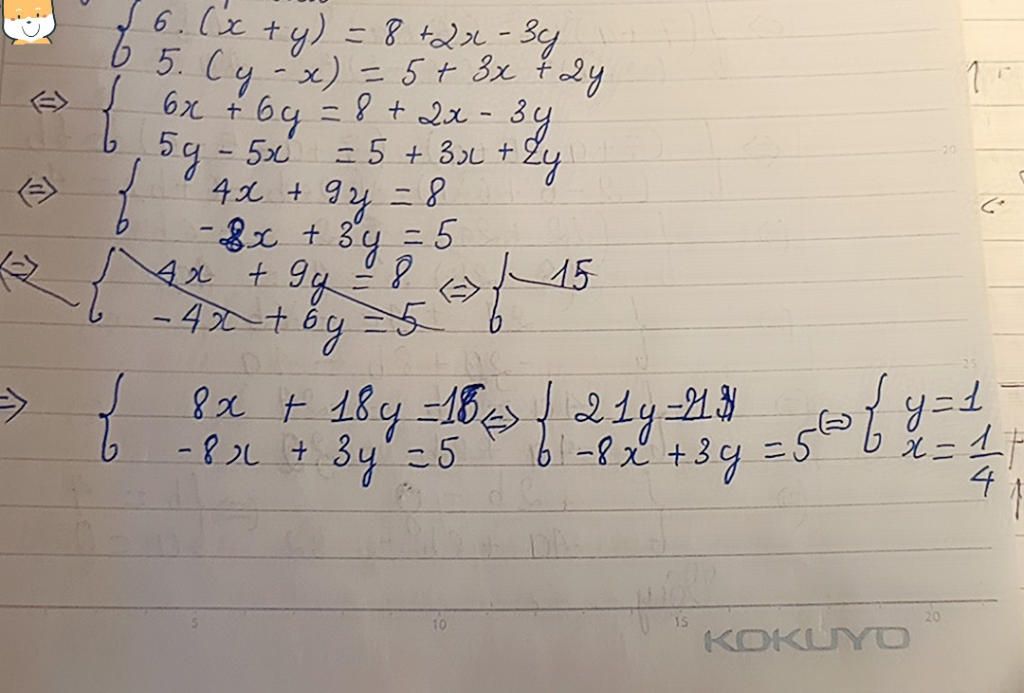 6.(x + y) = 8 + 2x - 3y
5.(y - x) = 5 + 3x + 2y
⇔ { 6x + 6y = 8 + 2x - 3y
5y - 5x = 5 + 3x + 2y
⇔ { 4x + 9y = 8
-8x + 3y = 5
⇔ { 4x + 9y = 8 ⇔ { 15
-4x + 6y = 5
⇒ { 8x + 18y = 16 ⇔ { 21y = 21 ⇔ { y = 1
-8x + 3y = 5 -8x + 3y = 5 x = 1/4
25
5 10 15 20
KOKUYO